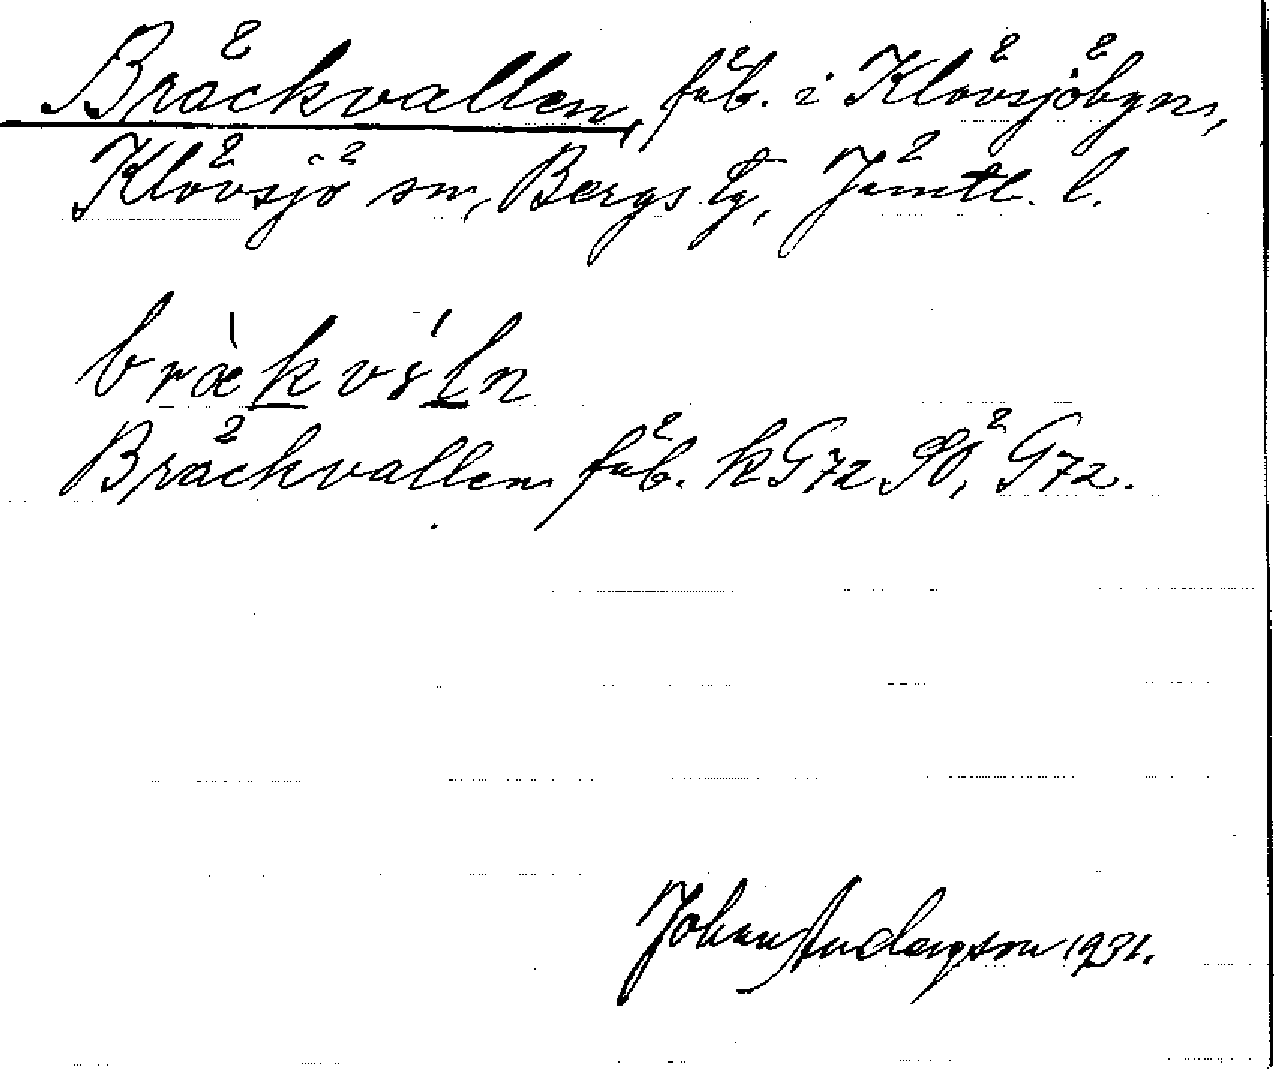 Bräckvallen, fäb. i Klövsjöbyn,
Klövsjö sn, Bergs tg, Jämtl. l.
bræ̀kvśḷn
Bräckvallen fäb. kG72 SÖ, G72.
Johan Anderson 1931.